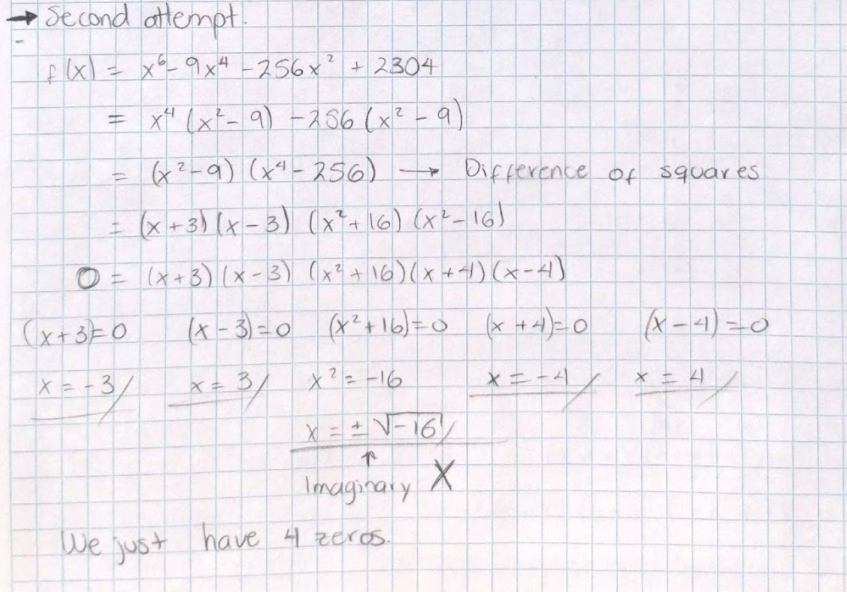 → Second attempt.
f(x) = x⁶ - 9x⁴ - 256x² + 2304
= x⁴ (x² - 9) - 256 (x² - 9)
= (x² - 9) (x⁴ - 256) → Difference of squares
= (x + 3) (x - 3) (x² + 16) (x² - 16)
0 = (x + 3) (x - 3) (x² + 16) (x + 4) (x - 4)
(x + 3) = 0 (x - 3) = 0 (x² + 16) = 0 (x + 4) = 0 (x - 4) = 0
x = -3 x = 3 x² = -16 x = -4 x = 4
x = ± √-16
↑
Imaginary X
We just have 4 zeros.